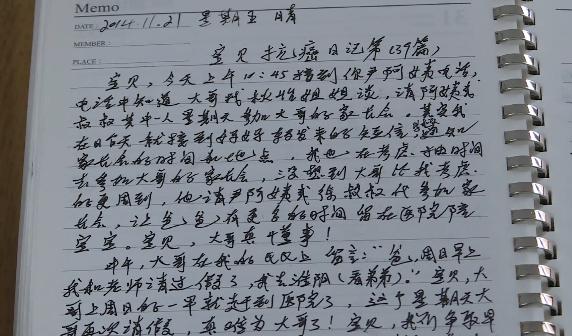 Memo
DATE: 2014.11.21 星期五 晴
MEMBER:
PLACE: 宝贝抗癌日记第(39篇)
宝贝,今天上午10:45接到你尹阿姨电话,
电话中知道大哥找姐姐说,请阿姨或
叔叔其中一人星期天参加大哥的家长会。其实我
在日前天就接到好好转发来的短信,通知
家长会的时间和地点,我也在考虑抽时间
去参加大哥的家长会,没想到大哥比我考虑
的更周到,他请尹阿姨或徐叔叔代参加家
长会,让爸爸有更多的时间留在医院陪
宝宝。宝贝,大哥真懂事!
中午,大哥在我的QQ上留言:“爸,周日早上
我和老师请过假了,我去淮阴(看弟弟)。”宝贝,大
哥上周日的一早就赶到医院了,这个星期天大
哥再次请假,真难为大哥了!宝贝,我们争取早